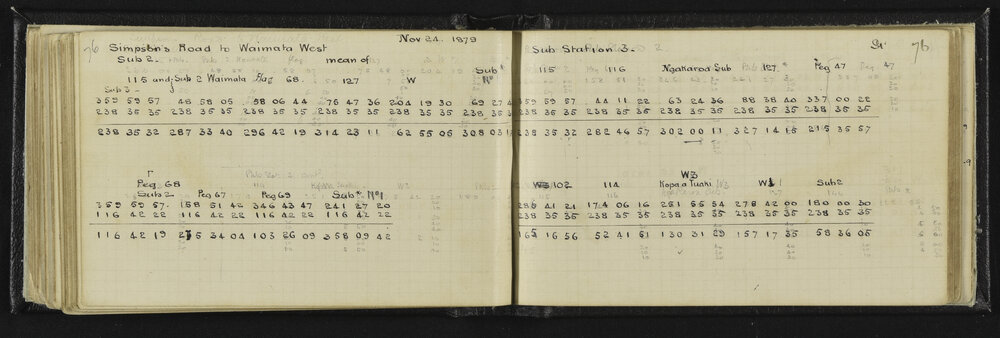 76 Simpson's Road to Waimata West Nov 24. 1879
Sub 2. mean of
115 and Sub 2 Waimata Flag 68. 127 W Sub Nº
Sub 3
359 59 57 48 58 05 58 06 44 75 47 36 204 19 30 69 27
238 35 35 238 35 35 238 35 35 238 35 35 238 35 35 238 35
238 35 32 287 33 40 296 42 19 314 23 11 62 55 05 308 03
Peg 68
Sub 2 Peg 67 Peg 69 Sub Nº1
359 59 57 158 51 42 346 43 47 241 27 20
116 42 22 116 42 22 116 42 22 116 42 22
116 42 19 275 34 04 103 26 09 358 09 42
Sub Station 3. 76
115 116 Ngakaroa Sub 127 Peg 47
359 59 57 44 11 22 63 24 36 88 38 40 337 00 22
238 35 35 238 35 35 238 35 35 238 35 35 238 35 35
238 35 32 282 46 57 302 00 11 327 14 15 215 35 57
W3
102 114 Kopaatuaki W1 Sub 2
41 21 174 06 16 251 55 54 278 42 00 180 00 30
238 35 35 238 35 35 238 35 35 238 35 35 238 35 35
165 16 56 52 41 51 130 31 29 157 17 35 58 36 05